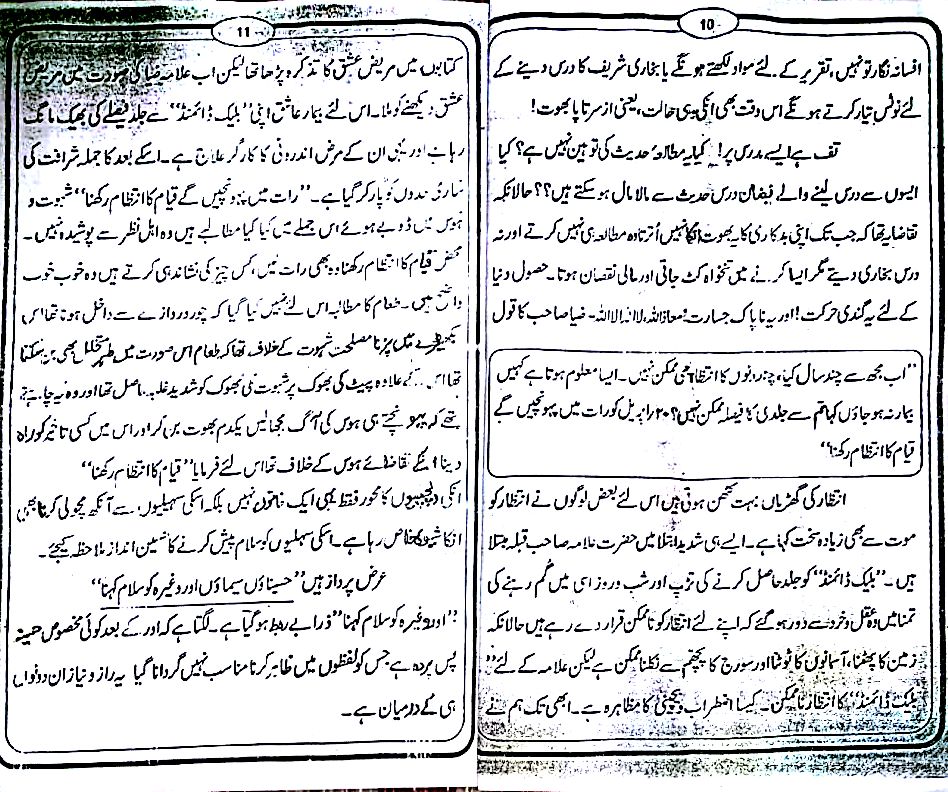 10
افسانہ نگار تو نہیں، تقریر کے لئے مواد لکھتے ہونگے یا بخاری شریف کا درس دینے کے
لئے نوٹس تیار کرتے ہونگے اس وقت بھی انکی یہی حالت، یعنی از سرتا پا بھوت!
تف ہے ایسے مدرس پر! کیا یہ مطالعۂ حدیث کی توہین نہیں ہے؟ کیا
ایسوں سے درس لینے والے فیضان درس حدیث سے مالا مال ہو سکتے ہیں؟؟ حالانکہ
تقاضا یہ تھا کہ جب تک اپنی بدکاری کا یہ بھوت انکا نہیں اُترتا وہ مطالعہ ہی نہیں کرتے اور نہ
درس بخاری دیتے مگر ایسا کرنے میں تنخواہ کٹ جاتی اور مالی نقصان ہوتا۔ حصول دنیا
کے لئے یہ گندی حرکت! اور یہ ناپاک جسارت! معاذ اللہ، لا الہ الا اللہ۔ ضیا صاحب کا قول
"اب مجھ سے چند سال کیا، چند دنوں کا انتظار بھی ممکن نہیں۔ ایسا معلوم ہوتا ہے کہیں
بیمار نہ ہو جاؤں کیا تم سے جلدی کا فیصلہ ممکن نہیں؟ ۲۰ اپریل کو رات میں پہونچیں گے
قیام کا انتظام رکھنا"
انتظار کی گھڑیاں بہت کٹھن ہوتی ہیں اس لئے بعض لوگوں نے انتظار کو
موت سے بھی زیادہ سخت کہا ہے۔ ایسے ہی شدید ابتلا میں حضرت علامہ صاحب قبلہ مبتلا
ہیں۔ "بلیک ڈائمنڈ" کو جلد حاصل کرنے کی تڑپ اور شب و روز اسی میں گم رہنے کی
تمنا میں وہ عقل و خرد سے دور ہو گئے کہ اپنے لئے انتظار کو ناممکن قرار دے رہے ہیں حالانکہ
زمین کا پھٹنا، آسمانوں کا ٹوٹنا اور سورج کا پچھم سے نکلنا ممکن ہے لیکن علامہ کے لئے "
بلیک ڈائمنڈ" کا انتظار ناممکن۔ کیسا اضطراب و بےچینی کا مظاہرہ ہے۔ ابھی تک ہم نے
11
کتابوں میں مریض عشق کا تذکرہ پڑھا تھا لیکن اب علامہ ضیا کی صورت میں مریض
عشق دیکھنے کو ملا۔ اس لئے بیمار عاشق اپنی "بلیک ڈائمنڈ" سے جلد فیصلے کی بھیک مانگ
رہا ہے اور یہی ان کے مرض اندرونی کا کارگر علاج ہے۔ اسکے بعد کا جملہ شرافت کی
ساری حدوں کو پار کر گیا ہے۔ "رات میں پہونچیں گے قیام کا انتظام رکھنا" شہوت و
ہوس میں ڈوبے ہوئے اس جملے میں کیا کیا مطالبے ہیں وہ اہل نظر سے پوشیدہ نہیں۔
محض قیام کا انتظام رکھنا وہ بھی رات میں، کس چیز کی نشاندہی کرتے ہیں وہ خوب خوب
واضح ہیں۔ طعام کا مطالبہ اس لئے نہیں کیا گیا کہ چور دروازے سے داخل ہونا تھا اس
بکھیڑے میں پڑنا مصلحت شہوت کے خلاف تھا کہ طعام اس صورت میں مخل بھی بن سکتا
تھا اس کے علاوہ پیٹ کی بھوک پر شہوتی بھوک کو شدید غلبہ حاصل تھا اور وہ یہ چاہتے
تھے کہ پہونچتے ہی ہوس کی آگ بجھائیں یکدم بھوت بن کر اور اس میں کسی تاخیر کو راہ
دینا انکے تقاضائے ہوس کے خلاف تھا اس لئے فرمایا "قیام کا انتظام رکھنا"
انکی دلچسپیوں کا محور فقط یہی ایک خاتون نہیں بلکہ اسکی سہیلیوں سے آنکھ مچولی کرنا بھی
انکا شیوۂ خاص رہا ہے۔ اسکی سہلیوں کو سلام پیش کرنے کا حسین انداز ملاحظہ کیجئے۔
عرض پرداز ہیں "حسیناؤں سیماؤں اور وغیرہ کو سلام کہنا"
"اور وغیرہ کو سلام کہنا" ذرا بے ربط ہو گیا ہے۔ لگتا ہے کہ اور کے بعد کوئی مخصوص حسینہ
پس پردہ ہے جس کو لفظوں میں ظاہر کرنا مناسب نہیں گردانا گیا یہ راز و نیاز ان دونوں
ہی کے درمیان ہے۔